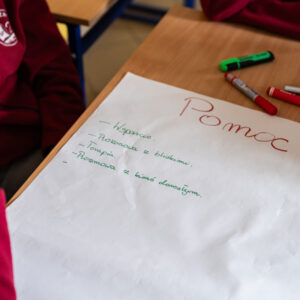 Pomoc
- Wsparcie
- Rozmowa z bliskimi.
- Terapia
- Rozmowa z kimś dorosłym.